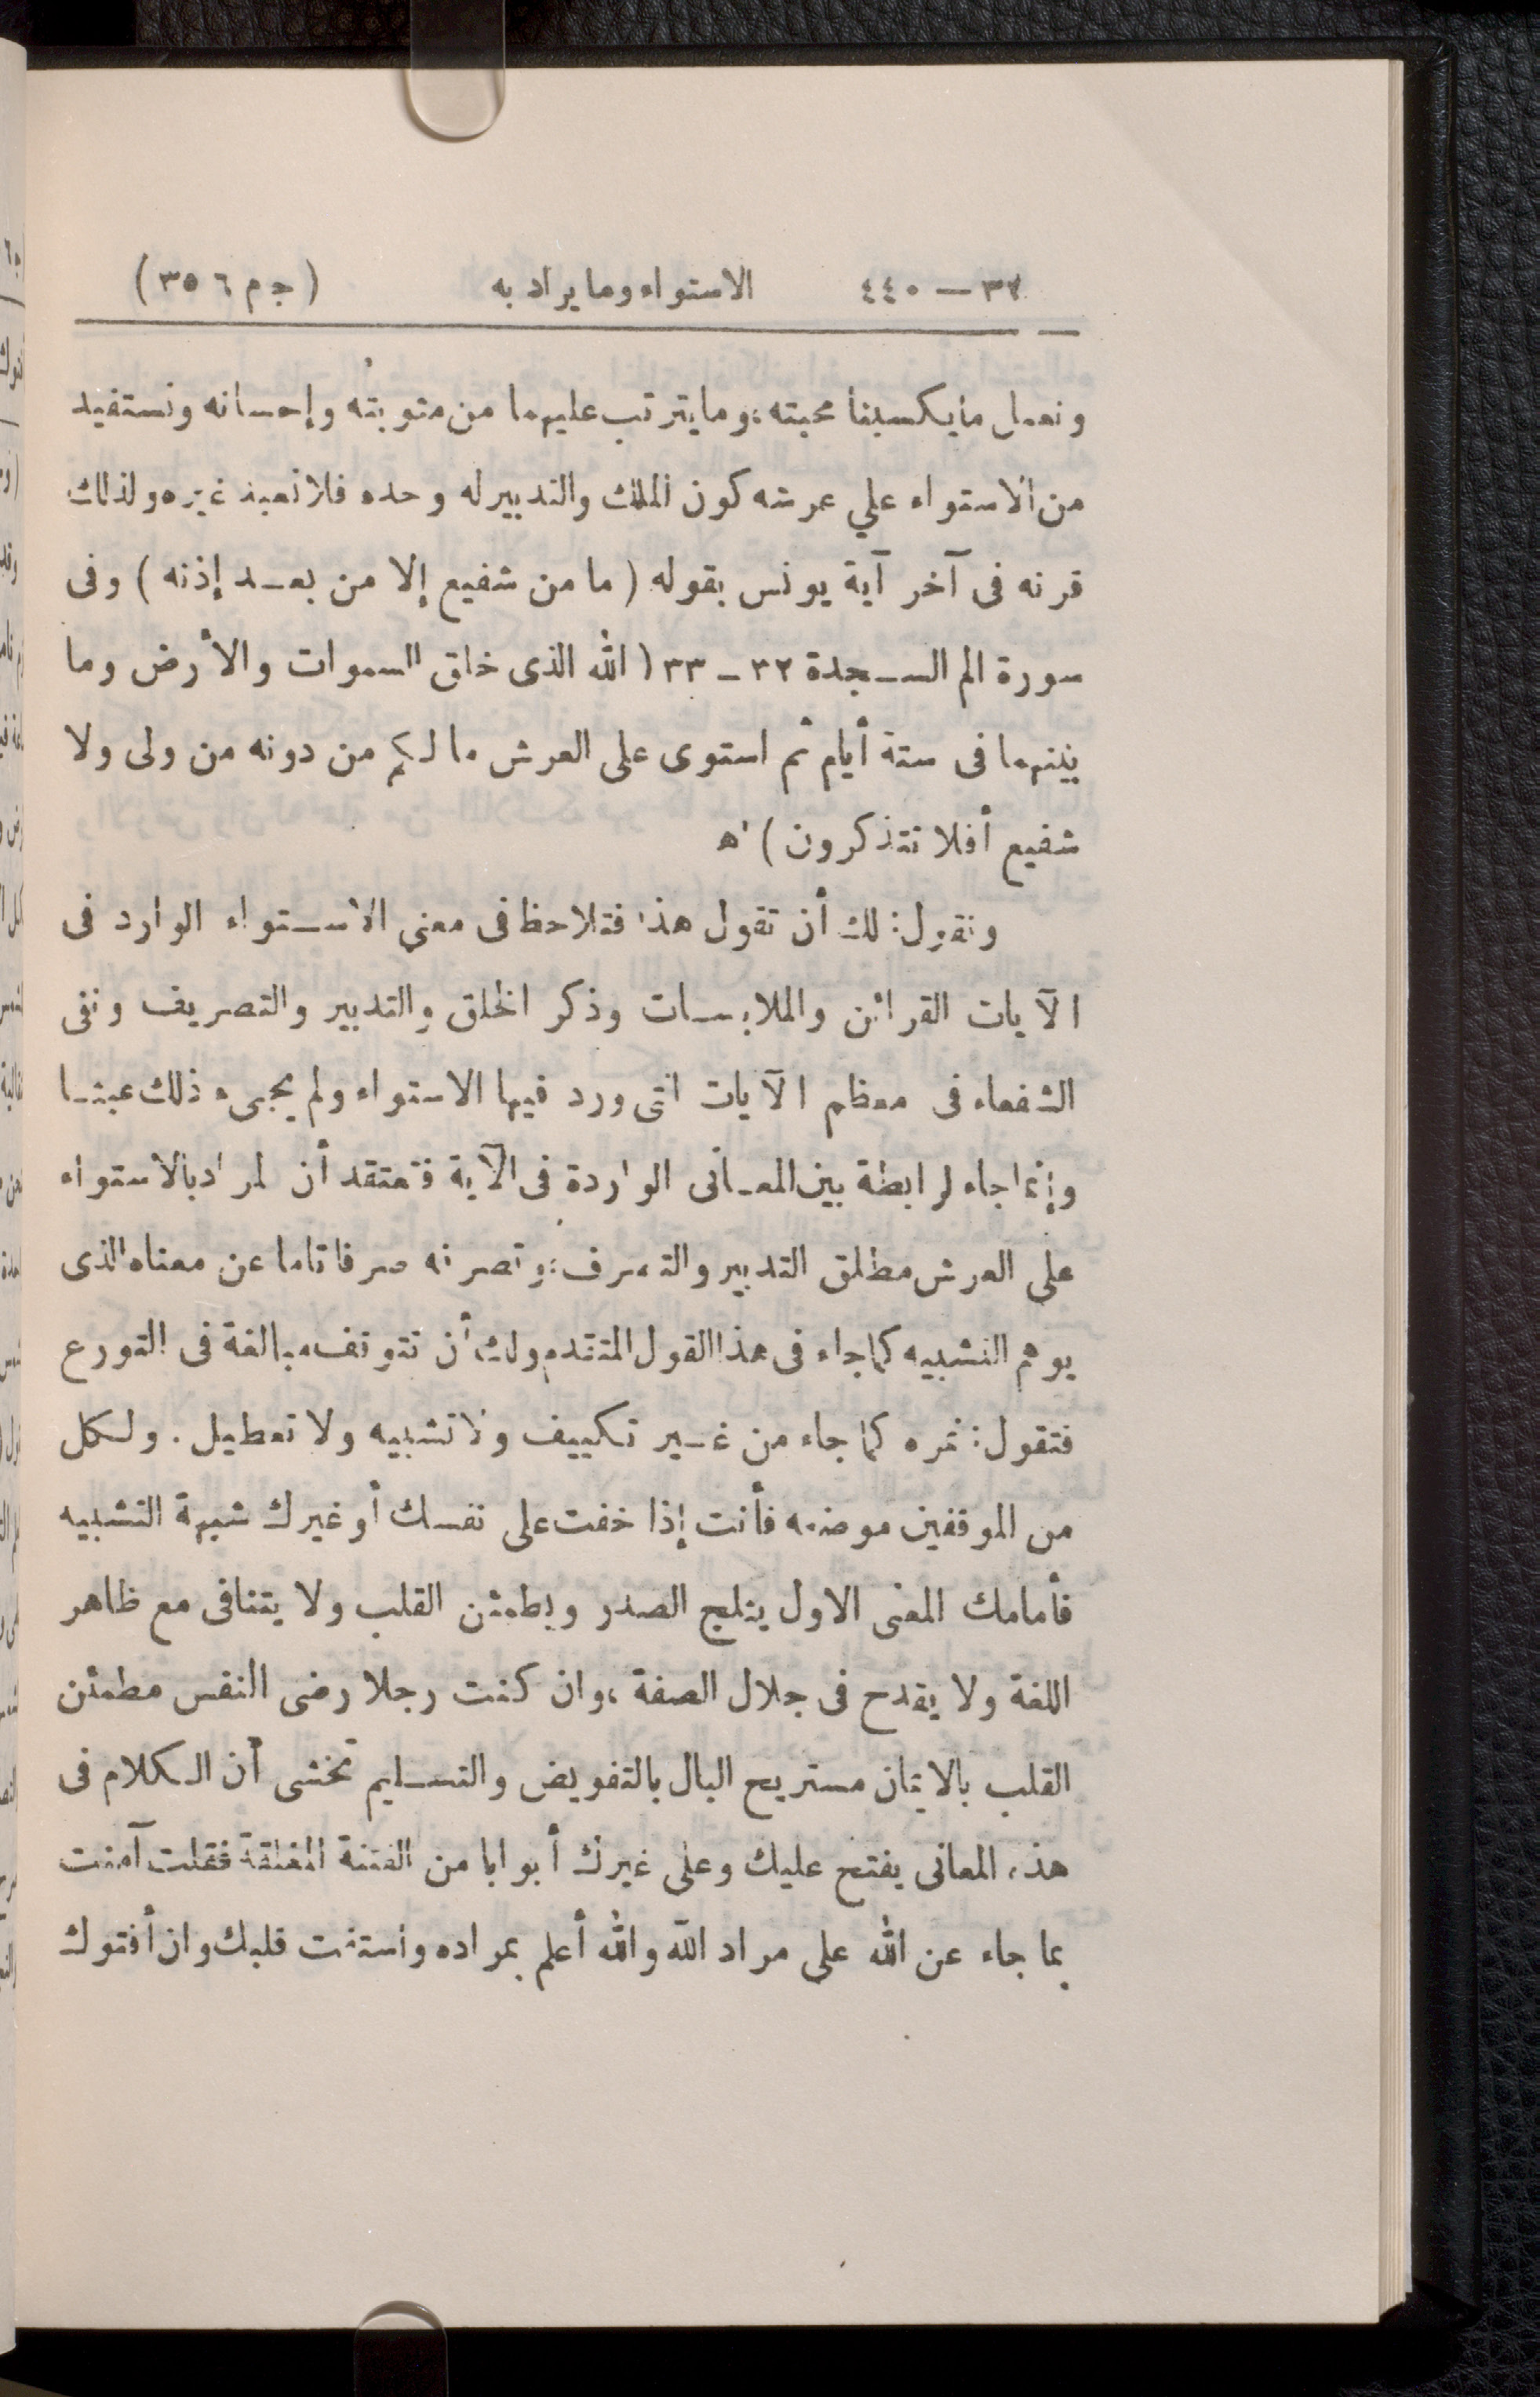 ٣٢ — ٤٤٠ الاستواء وما يراد به (ج م ٦ ٣٥)
ونعمل ما يكسبنا محبته، وما يترتب عليهما من مثوبته وإحسانه ونستفيد
من الاستواء علي عرشه كون الملك والتدبير له وحده فلا نعبد غيره ولذلك
قرنه فى آخر آية يونس بقوله ( ما من شفيع إلا من بعد إذنه ) وفى
سورة الم السجدة ٣٢ - ٣٣ ( الله الذى خلق السموات والأرض وما
بينهما فى ستة أيام ثم استوى على العرش ما لكم من دونه من ولى ولا
شفيع أفلا تتذكرون ) اه
ونقول: لك أن تقول هذا فتلاحظ فى معنى الاستواء الوارد فى
الآيات القرائن والملابسات وذكر الخلق والتدبير والتصريف ونفى
الشفعاء فى معظم الآيات التى ورد فيها الاستواء ولم يجىء ذلك عبثا
وإنما جاء لرابطة بين المعانى الواردة فى الآية فتعتقد أن لمراد بالاستواء
على العرش مطلق التدبير والتصرف؛ وتصرفه صرفا تاما عن معناه الذى
يوهم التشبيه كما جاء فى هذا القول المتقدم ولك أن تتوقف مبالغة فى التورع
فتقول: نمره كما جاء من غير تكييف ولا تشبيه ولا تعطيل . ولكل
من الموقفين موضعه فأنت إذا خفت على نفسك أو غيرك شبهة التشبيه
فأمامك المعنى الاول يثلج الصدر ويطمئن القلب ولا يتنافى مع ظاهر
اللغة ولا يقدح فى جلال الصفة ، وان كنت رجلا رضى النفس مطمئن
القلب بالايمان مستريح البال بالتفويض والتسليم تخشى أن الكلام فى
هذه المعانى يفتح عليك وعلى غيرك أبوابا من الفتنة المغلقة فقلت آمنت
بما جاء عن الله على مراد الله والله أعلم بمراده واستفت قلبك وان أفتوك